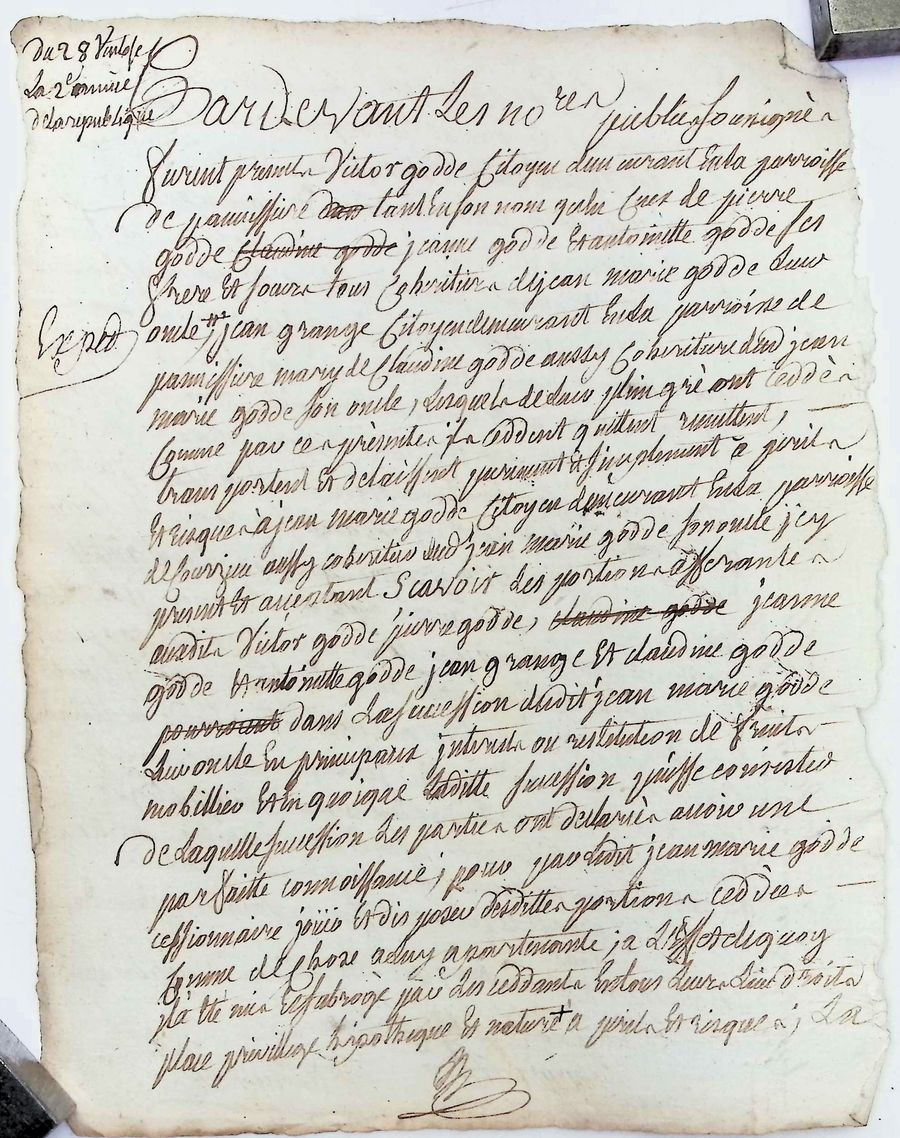 Du 28 Ventose
La 2e année
de la republique
Pardevant Les nores publics Sousignès
furent presents Victor godde Citoyen demeurant En la parroisse
de pannissiere dans tant En son nom qu'au de pierre
godde Claudine godde jeanne godde Et antoinette godde ses
frere Et soeurs tous Coheritiers de jean marie godde Leur
oncle, jean grange Citoyen demeurant En la parroisse de
Exped
pannissiere mary de Claudine godde aussy Coheritiere dud jean
marie godde son oncle, Lesquels de Leur plein grè ont ceddès
Comme par ces présentes ils ceddent quittent remettent,
transportent Et delaissent purement Et simplement a perils
Et risques à jean marie godde Citoyen demeurant En la parroisse
de Courzieu aussy coheritier dud jean marie godde son oncle jcy
present Et acceptant Scavoir Les portions afferantes
auxdits Victor godde pierre godde, claudine godde jeanne
godde Et antoinette godde jean grange Et claudine godde
pourroient dans La Succession dudit jean marie godde
Leur oncle En principaux interests ou restitution de fruits
mobillier Et En quoique Laditte succession puisse consister
de Laquelle succession Les parties ont declarès avoir une
parfaitte connoissance, pour par Ledit jean marie godde
cessionnaire joüir Et disposer desdittes portions ceddées
Comme de Chose a Luy apartenante ; a L'Effet de quoy
il a ète mis Et subrogè par Les ceddants En tous Leurs Lieu droits
place privillege hipothique Et nature a perils Et risques, La